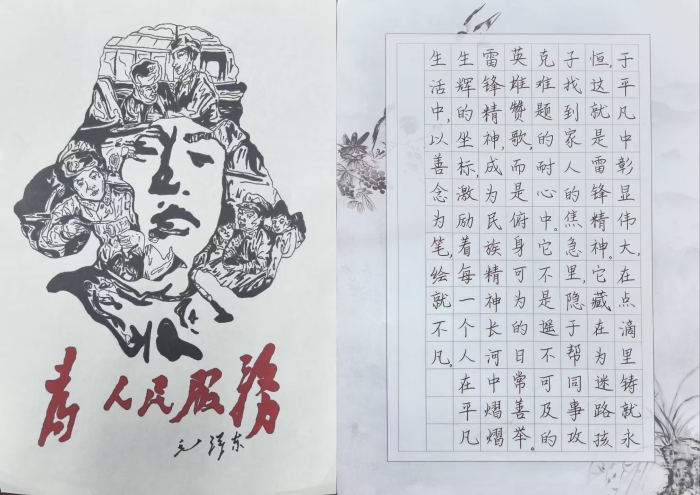 为人民服务
毛泽东
于平凡中彰显伟大,在点滴里铸就永
恒,这就是雷锋精神。它藏在为迷路孩
子找到家人的焦急里,隐于帮同事攻
克难题的耐心中。它不是遥不可及的
英雄赞歌,而是俯身可为的日常善举。
雷锋精神,成为民族精神长河中熠熠
生辉的坐标,激励着每一个人在平凡
生活中,以善念为笔,绘就不凡。